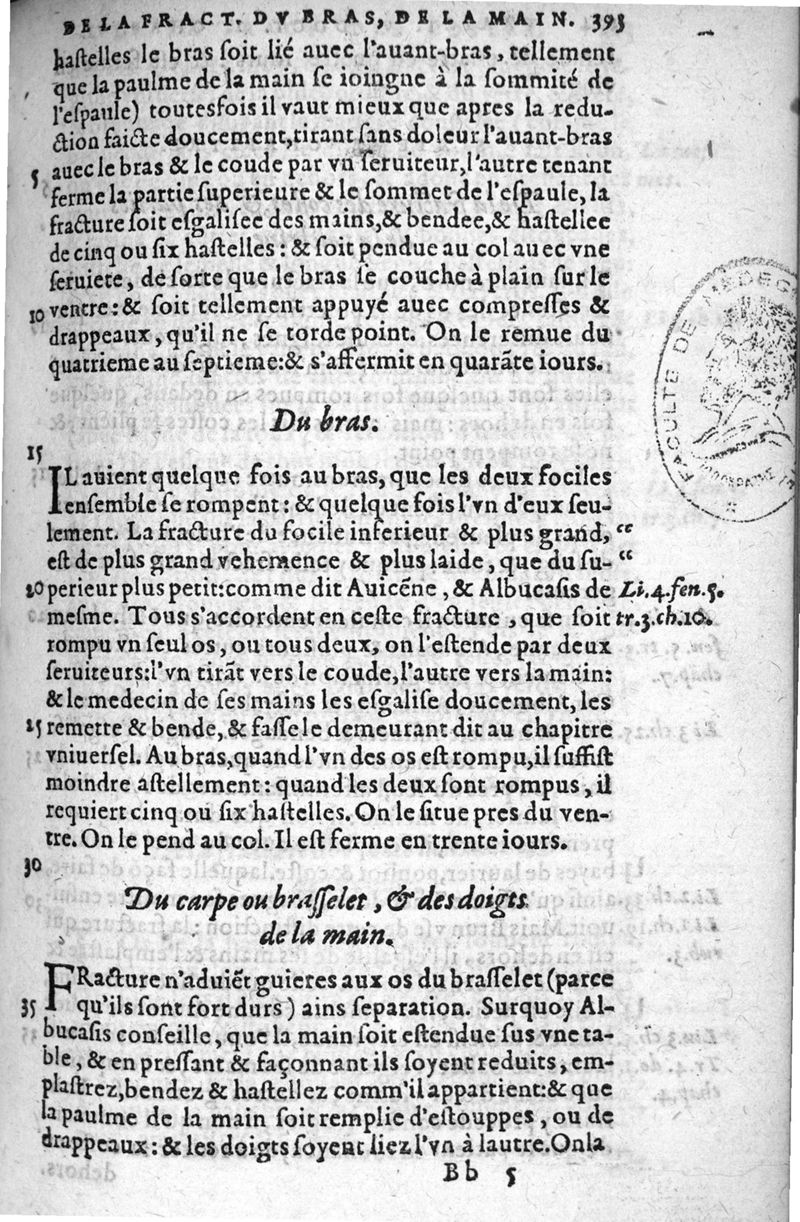 DE LA FRACT. DV BRAS, DE LA MAIN. 393
haſtelles le bras ſoit lié auec l'auant-bras, tellement
que la paulme de la main ſe ioingne à la ſommité de
l'eſpaule) toutesfois il vaut mieux que apres la redu-
ction faicte doucement, tirant ſans doleur l'auant-bras
5 auec le bras & le coude par vn ſeruiteur, l'autre tenant
ferme la partie ſuperieure & le ſommet de l'eſpaule, la
fracture ſoit eſgaliſee des mains, & bendee, & haſtellee
de cinq ou ſix haſtelles : & ſoit pendue au col auec vne
ſeruiete, de ſorte que le bras ſe couche à plain ſur le
10 ventre: & ſoit tellement appuyé auec compreſſes &
drappeaux, qu'il ne ſe torde point. On le remue du
quatrieme au ſeptieme: & s'affermit en quarãte iours.
Du bras.
15
IL auient quelque fois au bras, que les deux fociles
enſemble ſe rompent : & quelque fois l'vn d'eux ſeu-
lement. La fracture du focile inferieur & plus grand, “
eſt de plus grand vehemence & plus laide, que du ſu- “
20 perieur plus petit: comme dit Auicẽne, & Albucaſis de Li.4.fen.5.
meſme. Tous s'accordent en ceſte fracture, que ſoit tr.3.ch.10.
rompu vn ſeul os, ou tous deux, on l'eſtende par deux
ſeruiteurs: l'vn tirãt vers le coude, l'autre vers la main:
& le medecin de ſes mains les eſgaliſe doucement, les
25 remette & bende, & faſſe le demeurant dit au chapitre
vniuerſel. Au bras, quand l'vn des os eſt rompu, il ſuffiſt
moindre aſtellement : quand les deux ſont rompus, il
requiert cinq ou ſix haſtelles. On le ſitue pres du ven-
tre. On le pend au col. Il eſt ferme en trente iours.
30
Du carpe ou braſſelet, & des doigts
de la main.
FRacture n'aduiẽt guieres aux os du braſſelet (parce
35 qu'ils ſont fort durs) ains ſeparation. Surquoy Al-
bucaſis conſeille, que la main ſoit eſtendue ſus vne ta-
ble, & en preſſant & façonnant ils ſoyent reduits, em-
plaſtrez, bendez & haſtellez comm'il appartient: & que
la paulme de la main ſoit remplie d'eſtouppes, ou de
drappeaux : & les doigts ſoyent liez l'vn à lautre. On la
Bb 5
FACULTE DE MEDEC